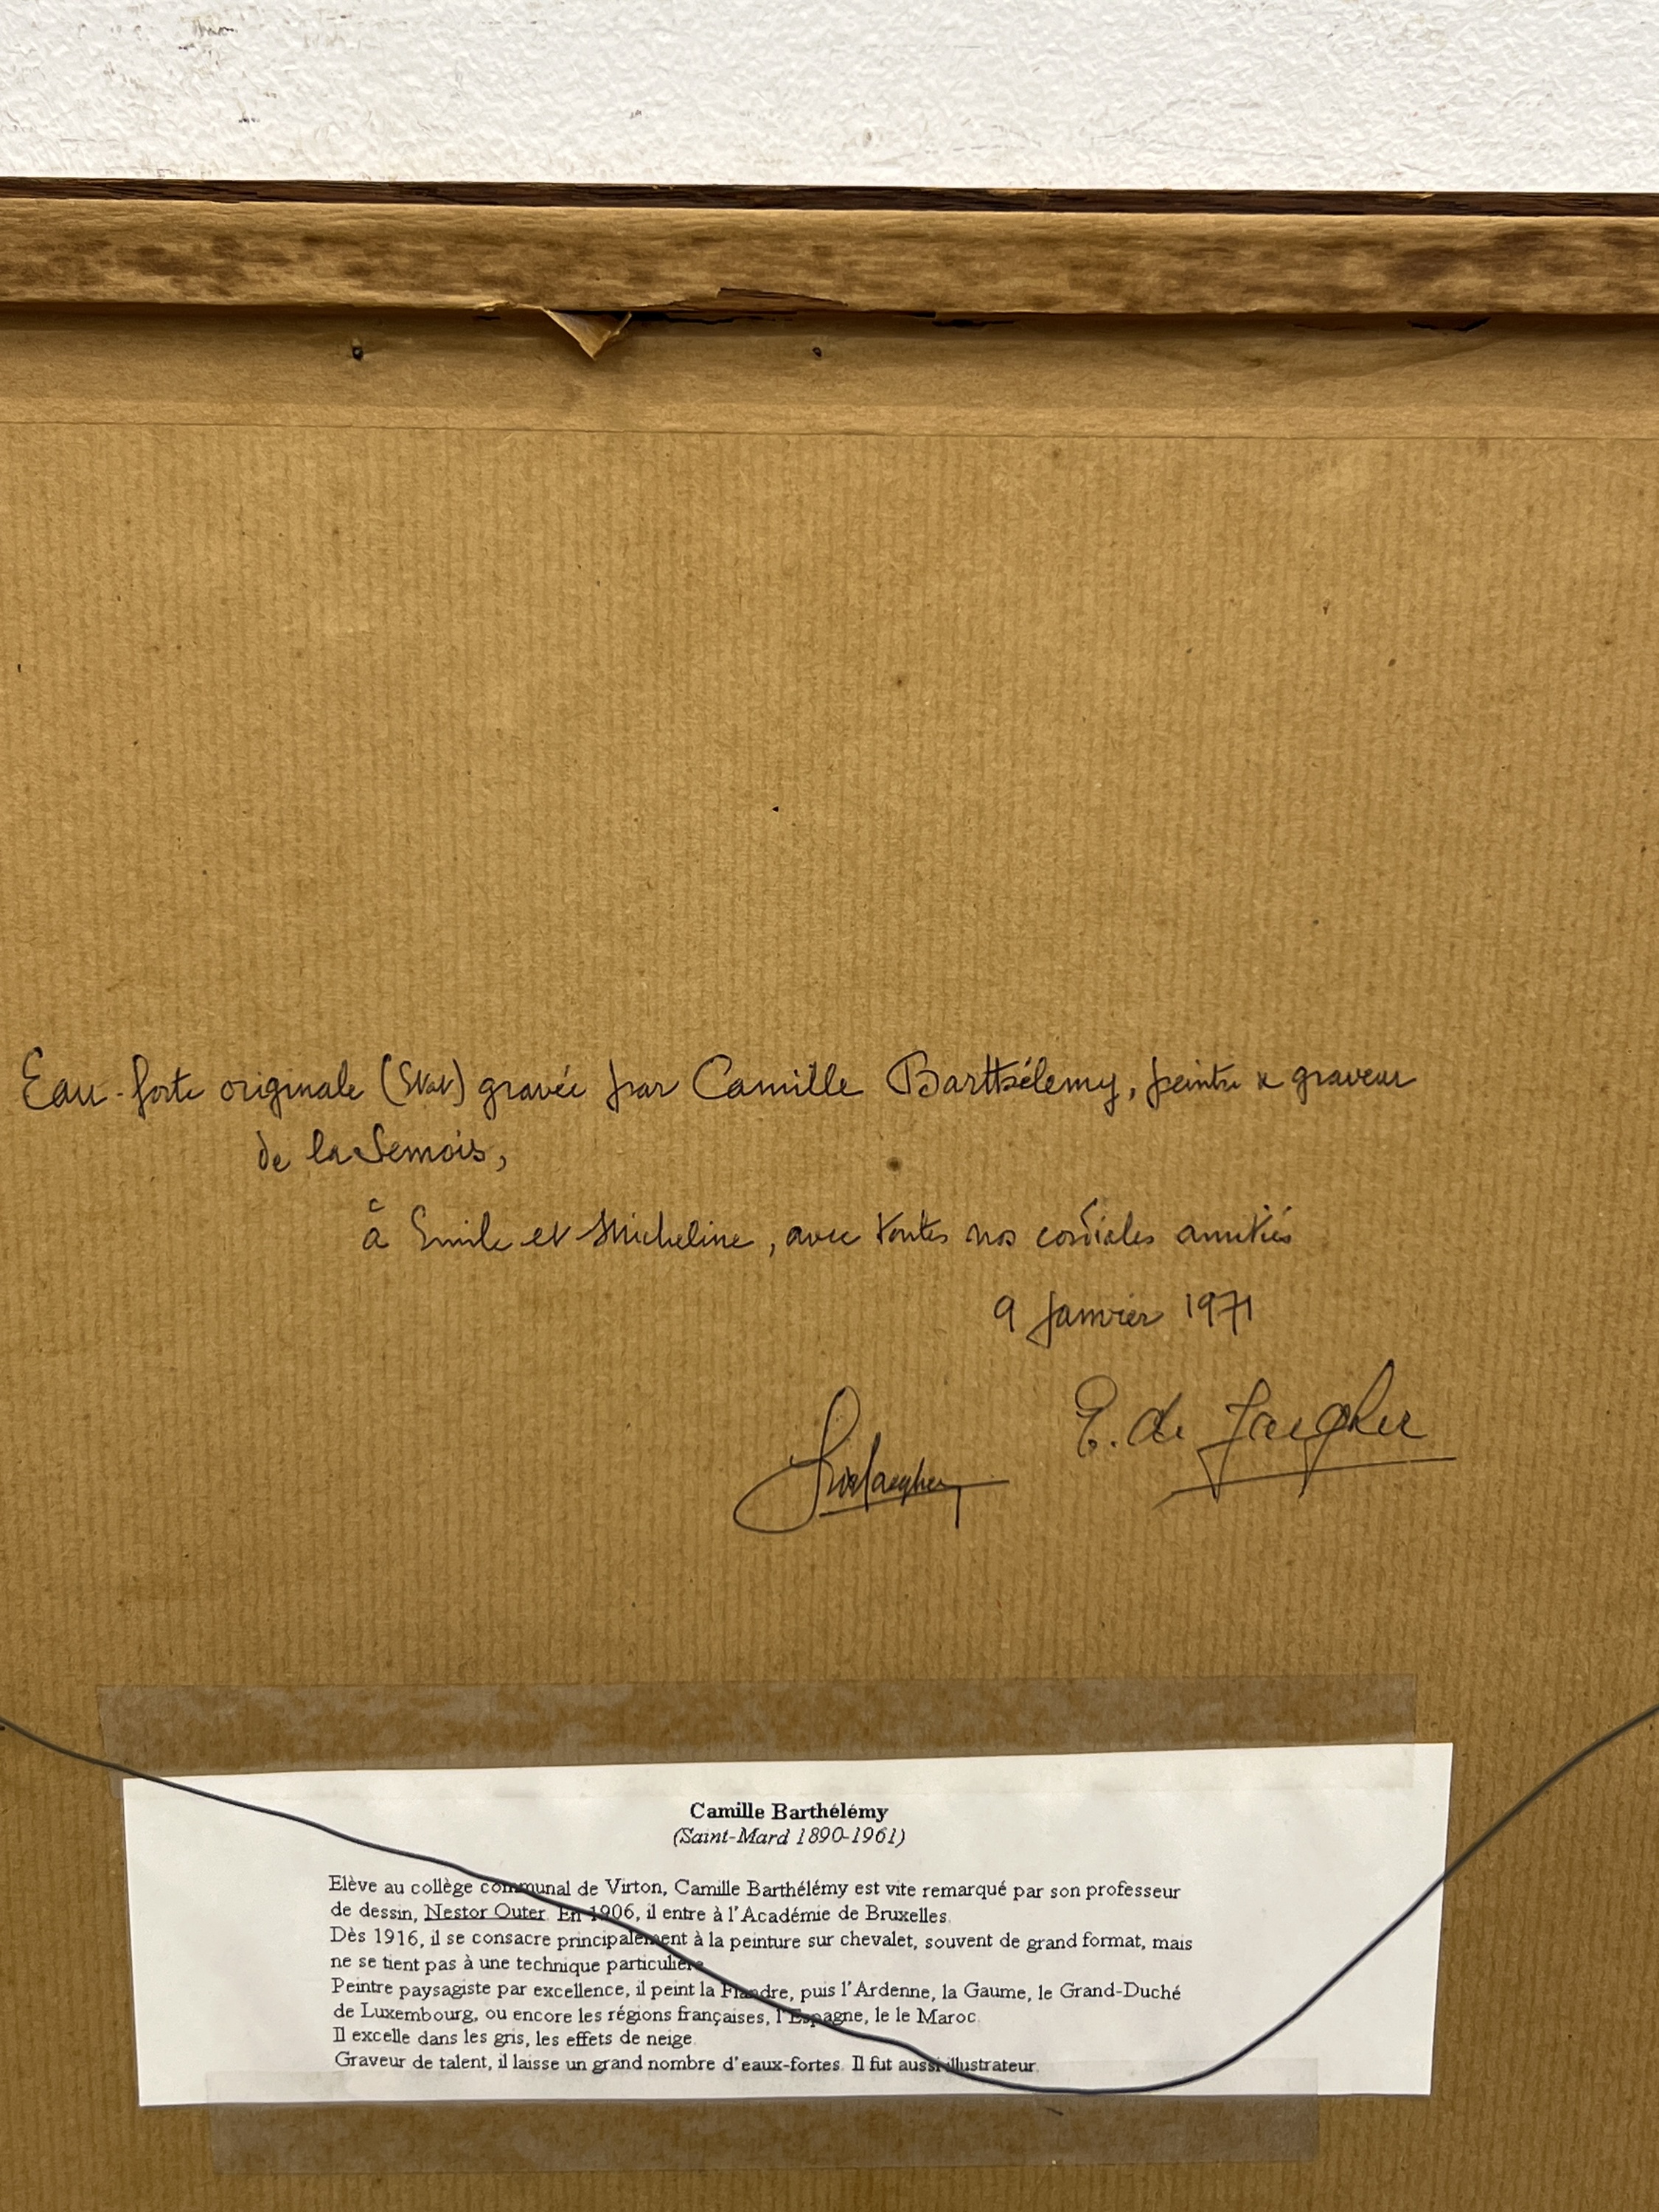 Eau-forte originale (Etat) gravée par Camille Barthélemy, peintre & graveur
de la Semois,
à Emile et Micheline, avec toutes nos cordiales amitiés
9 janvier 1971
E. de Jaegher
Camille Barthélémy
(Saint-Mard 1890-1961)
Elève au collège communal de Virton, Camille Barthélémy est vite remarqué par son professeur
de dessin, Nestor Outer. En 1906, il entre à l'Académie de Bruxelles.
Dès 1916, il se consacre principalement à la peinture sur chevalet, souvent de grand format, mais
ne se tient pas à une technique particulière.
Peintre paysagiste par excellence, il peint la Flandre, puis l'Ardenne, la Gaume, le Grand-Duché
de Luxembourg, ou encore les régions françaises, l'Espagne, le le Maroc.
Il excelle dans les gris, les effets de neige.
Graveur de talent, il laisse un grand nombre d'eaux-fortes. Il fut aussi illustrateur.